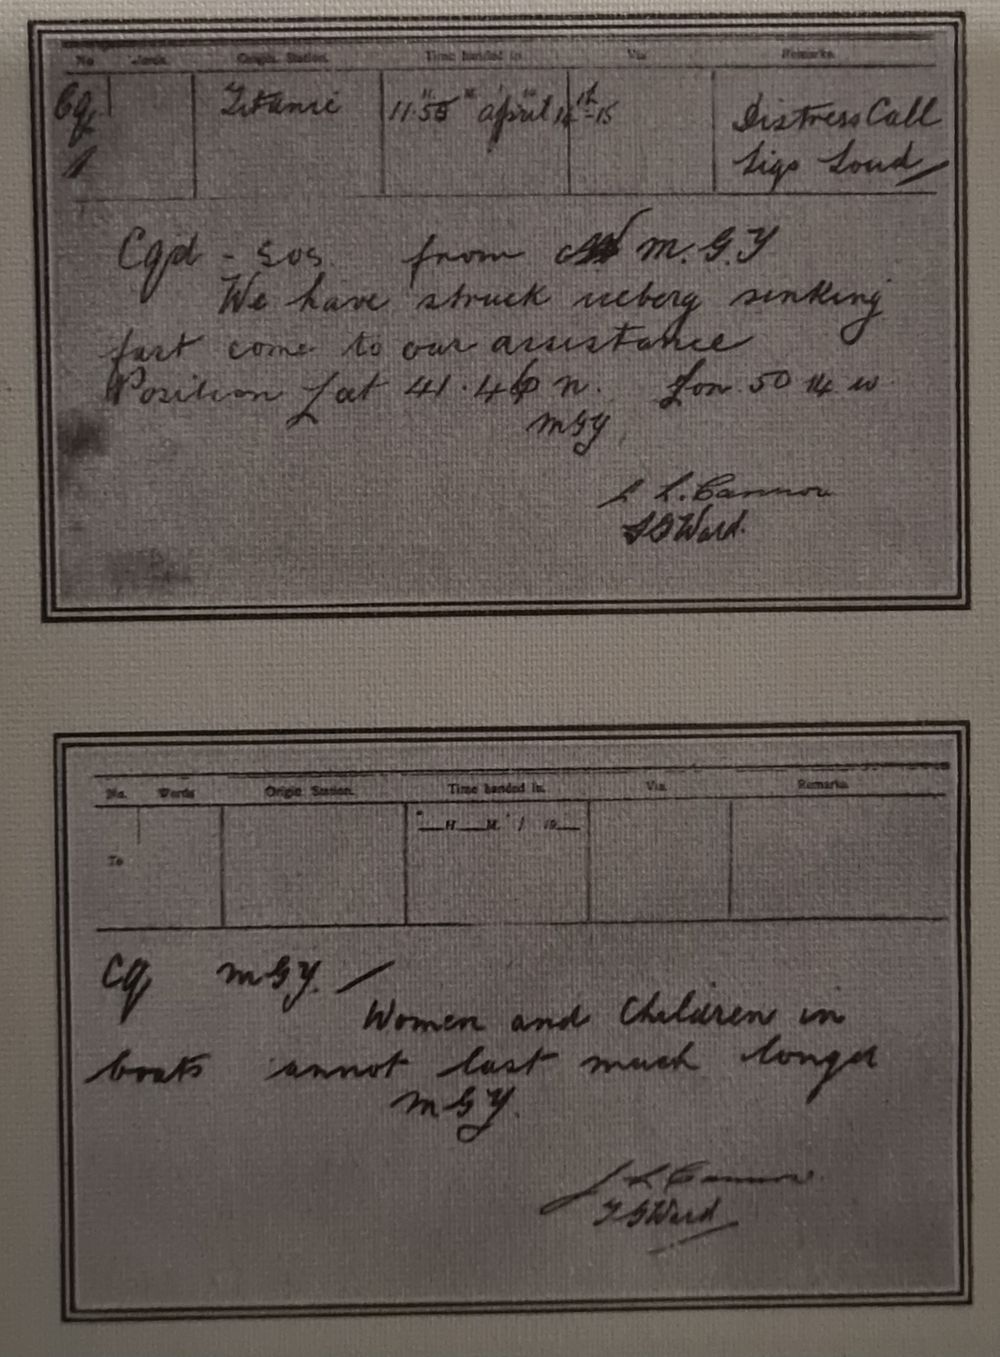 No. Words. Origin. Station. Time handed in. Via Remarks.
Cq Titanic 11.55 " april 14th-15 Distress Call
Sigs Loud
Cqd - SOS. from M.G.Y
We have struck iceberg sinking
fast come to our assistance
Position Lat 41.46 n. Lon. 50 14 w.
MGY
L. Cannon
Ward.
No. Words Origin. Station. Time handed in. Via Remarks
H M 19
To
Cq MGY.
Women and Children in
boats annot last much longer
MGY.
J L Cannon
Ward